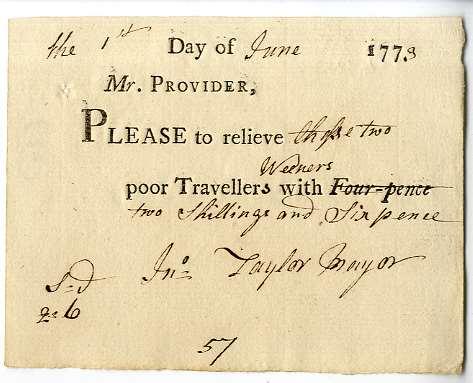 the 1st Day of June 1773
Mr. PROVIDER,
PLEASE to relieve these two
Weavers
poor Travellers with Four-pence
two Shillings and Sixpence
Jno. Taylor Mayor
S D
2 = 6
57